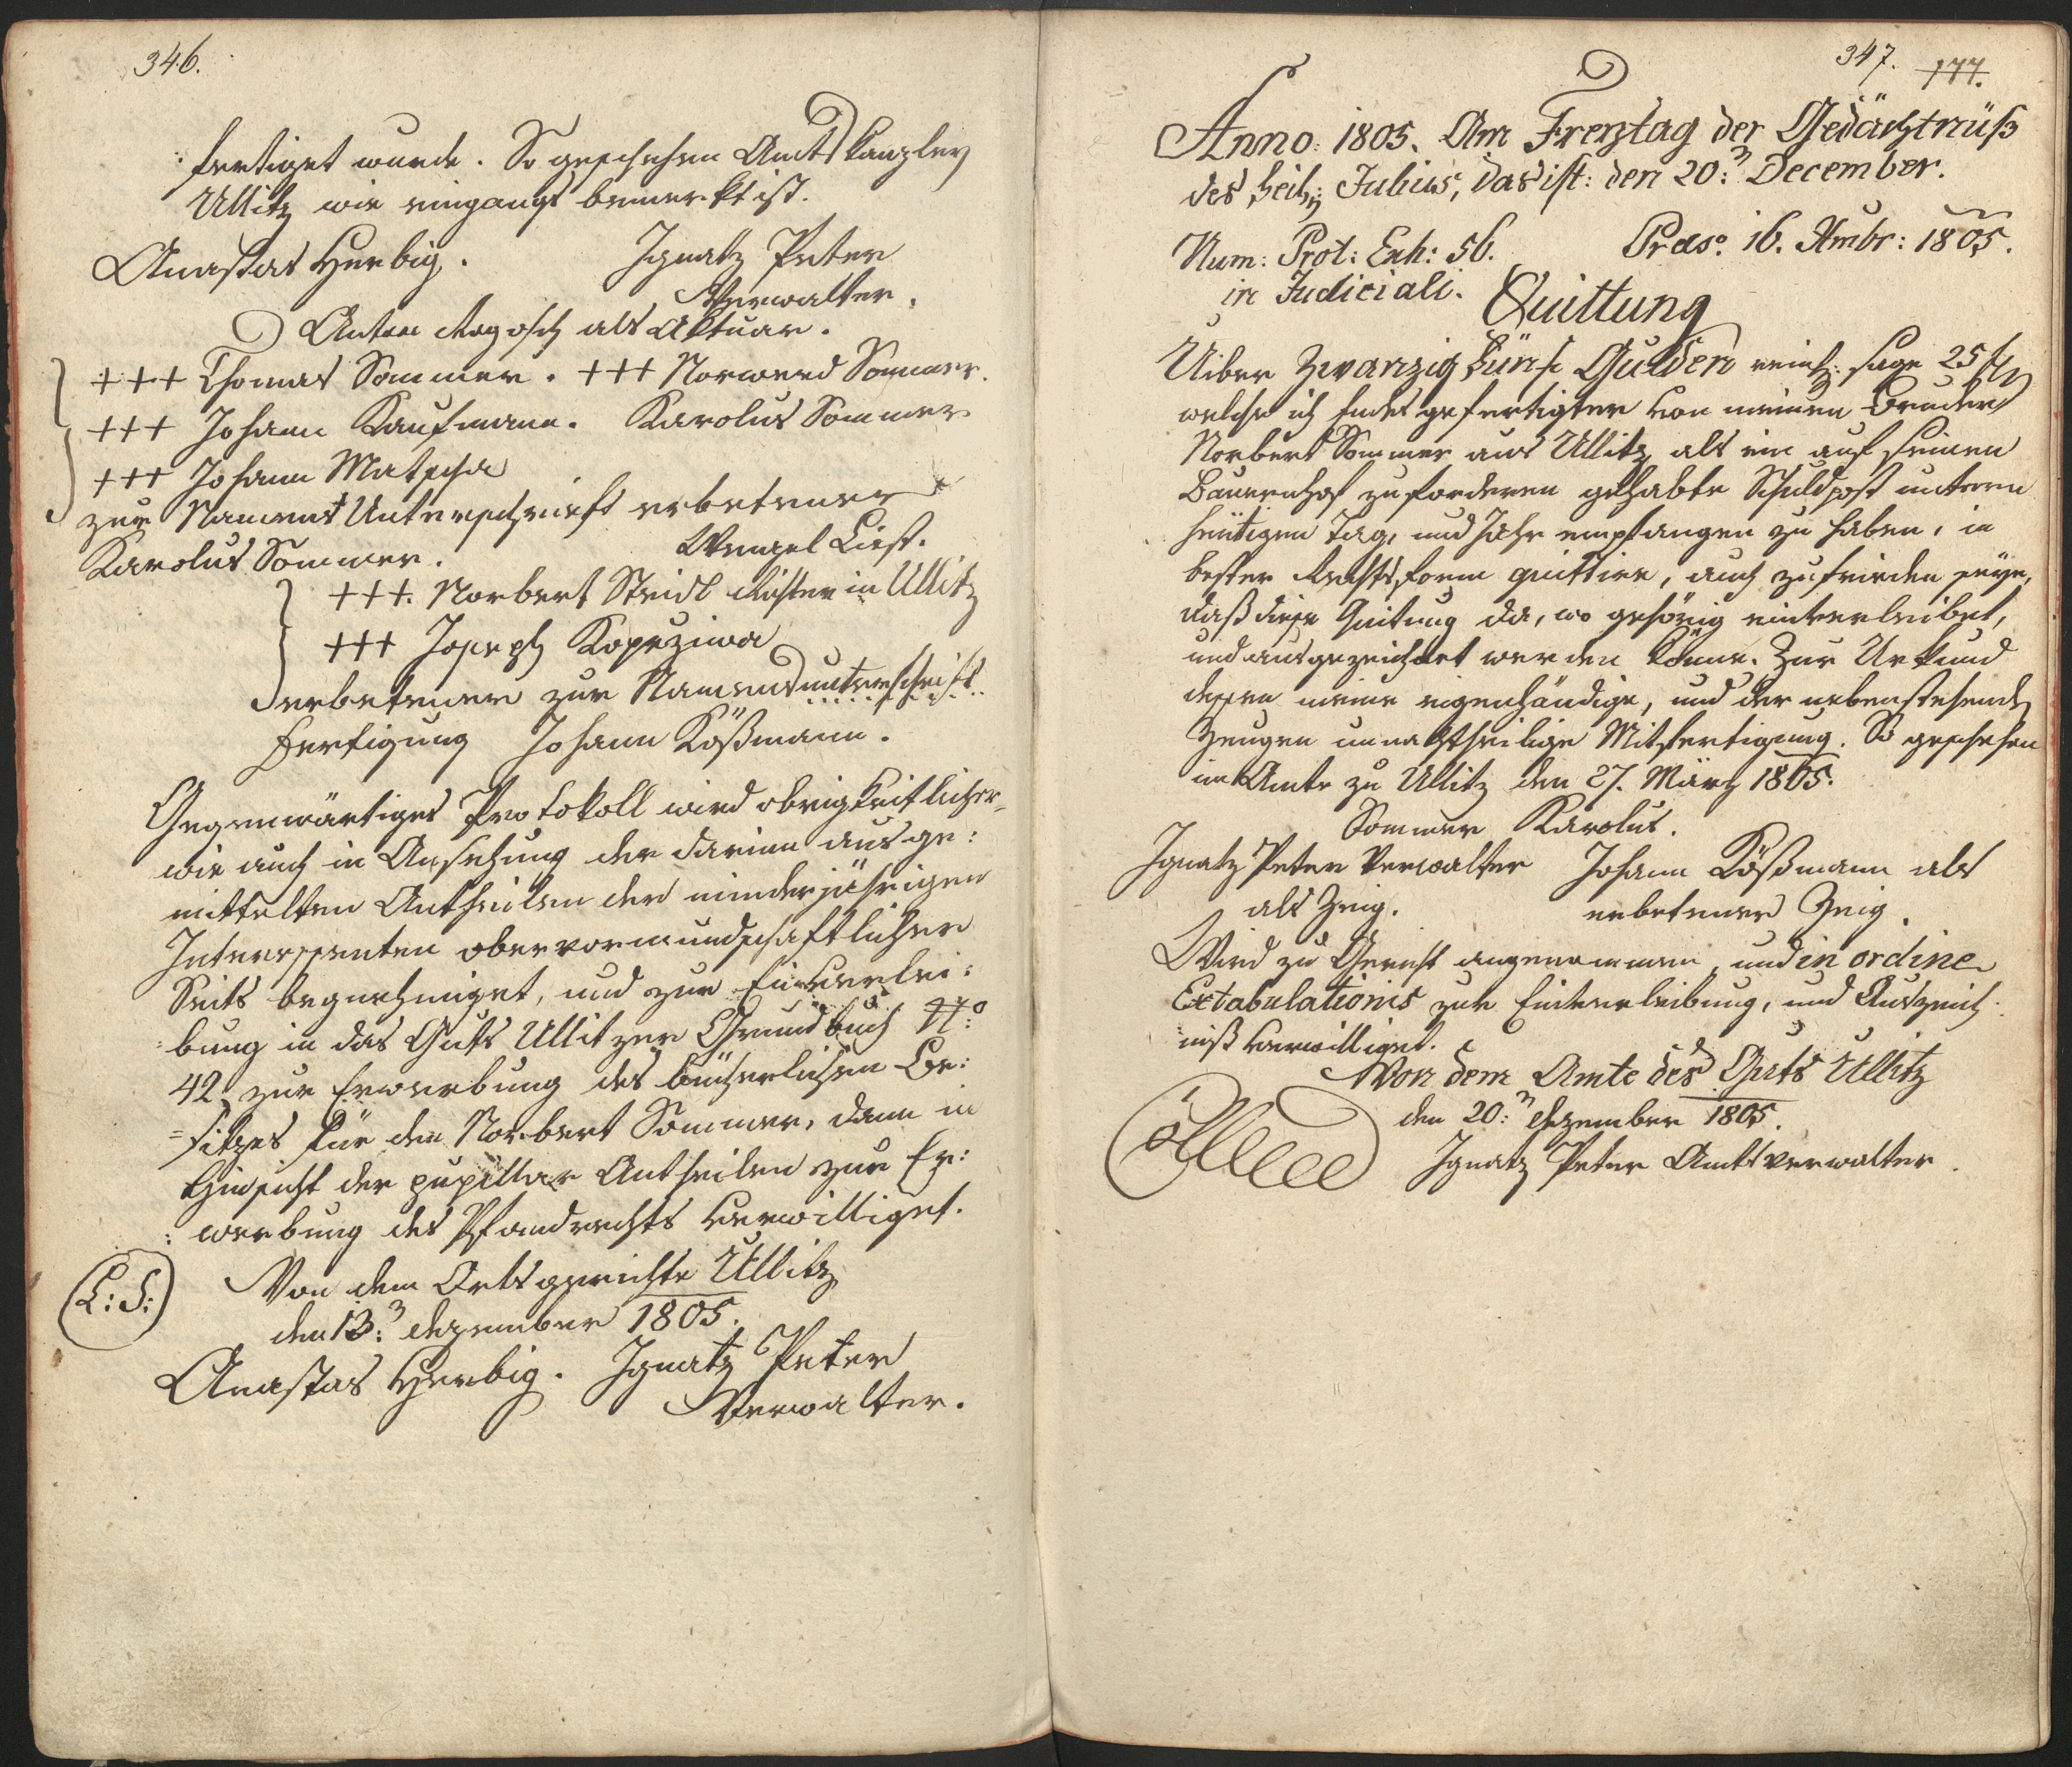 346.
: fertiget wurde. So geschehen Amtskanzley
Ullitz wie eingangs bemerkt ist.
Anastas Herbig. Ignatz Peter
Verwalter.
Anton Rogosch als Aktuar.
+++ Thomas Sommer. +++ Norwerd Sommer.
+++ Johann Kaufmann. Karolus Sommer
+++ Johann Matscha
zur Namens Unterschrieft erbetener
Karolus Sommer. Wenzel List.
+++. Norbert Steidl Richter in Ullitz
+++ Joseph Kopeziwa
erbetener zur Namensunterschrift
Fertigung Johann Kößmann.
Gegenwärtiges Protokoll wird obrigkeitlicher-
wie auch in Ansehung der darinn ausge:
mittelten Antheilen der minderjährigen
Interessenten obervormundschaftlicher
Seits begnehmiget, und zur Einverlei:
: bung in das Guts Ullitzer Grundbuch N:o
42 zur Erwerbung des bücherlichen Be:
= sitzes für den Norbert Sommer, dann in
Hinsicht der pupillar Antheilen zur Er:
: werbung des Pfandrechts verwilliget.
(L:S:) Von dem Ortsgerichte Ullitz
den 13: Dezember 1805.
Anastas Herbig. Ignatz Peter
Verwalter.
347. 177.
Anno: 1805. Am Freytag der Gedächtnüß
des heil: Julius, das ist: den 20: December.
Num: Prot: Exh: 56. Præs: 16. Xmbr: 1805.
in Judiciali.
Quittung
Uiber Zwanzig Fünf Gulden reinsch: sage 25 f
welche ich Endes gefertigter von meinen Bruder
Norbert Sommer aus Ullitz als ein auf seinen
Bauernhof zu forderen gehabte Schuldpost unterm
heütigen Tag, und Jahr empfangen zu haben, in
bester Rechtsform quittire, auch zufrieden seye,
daß diese Quitung da, wo gehörig einverleibet,
und ausgezeichnet werden könne. Zur Urkund
dessen meine eigenhändige, und der nebenstehend
Zeugen unnachtheilige Mitfertigung. So geschehen
im Amte zu Ullitz den 27. März 1805.
Sommer Karolus.
Ignatz Peter Verwalter Johann Kößmann als
als Zeig. erbetener Zeig.
Wird zu Gericht angenommen, und in ordine
Extabulationis zur Einverleibung, und Auszeich
: niß verwilliget.
Von dem Amte des Guts Ullitz
den 20: Dezember 1805.
Ignatz Peter Amtsverwalter.